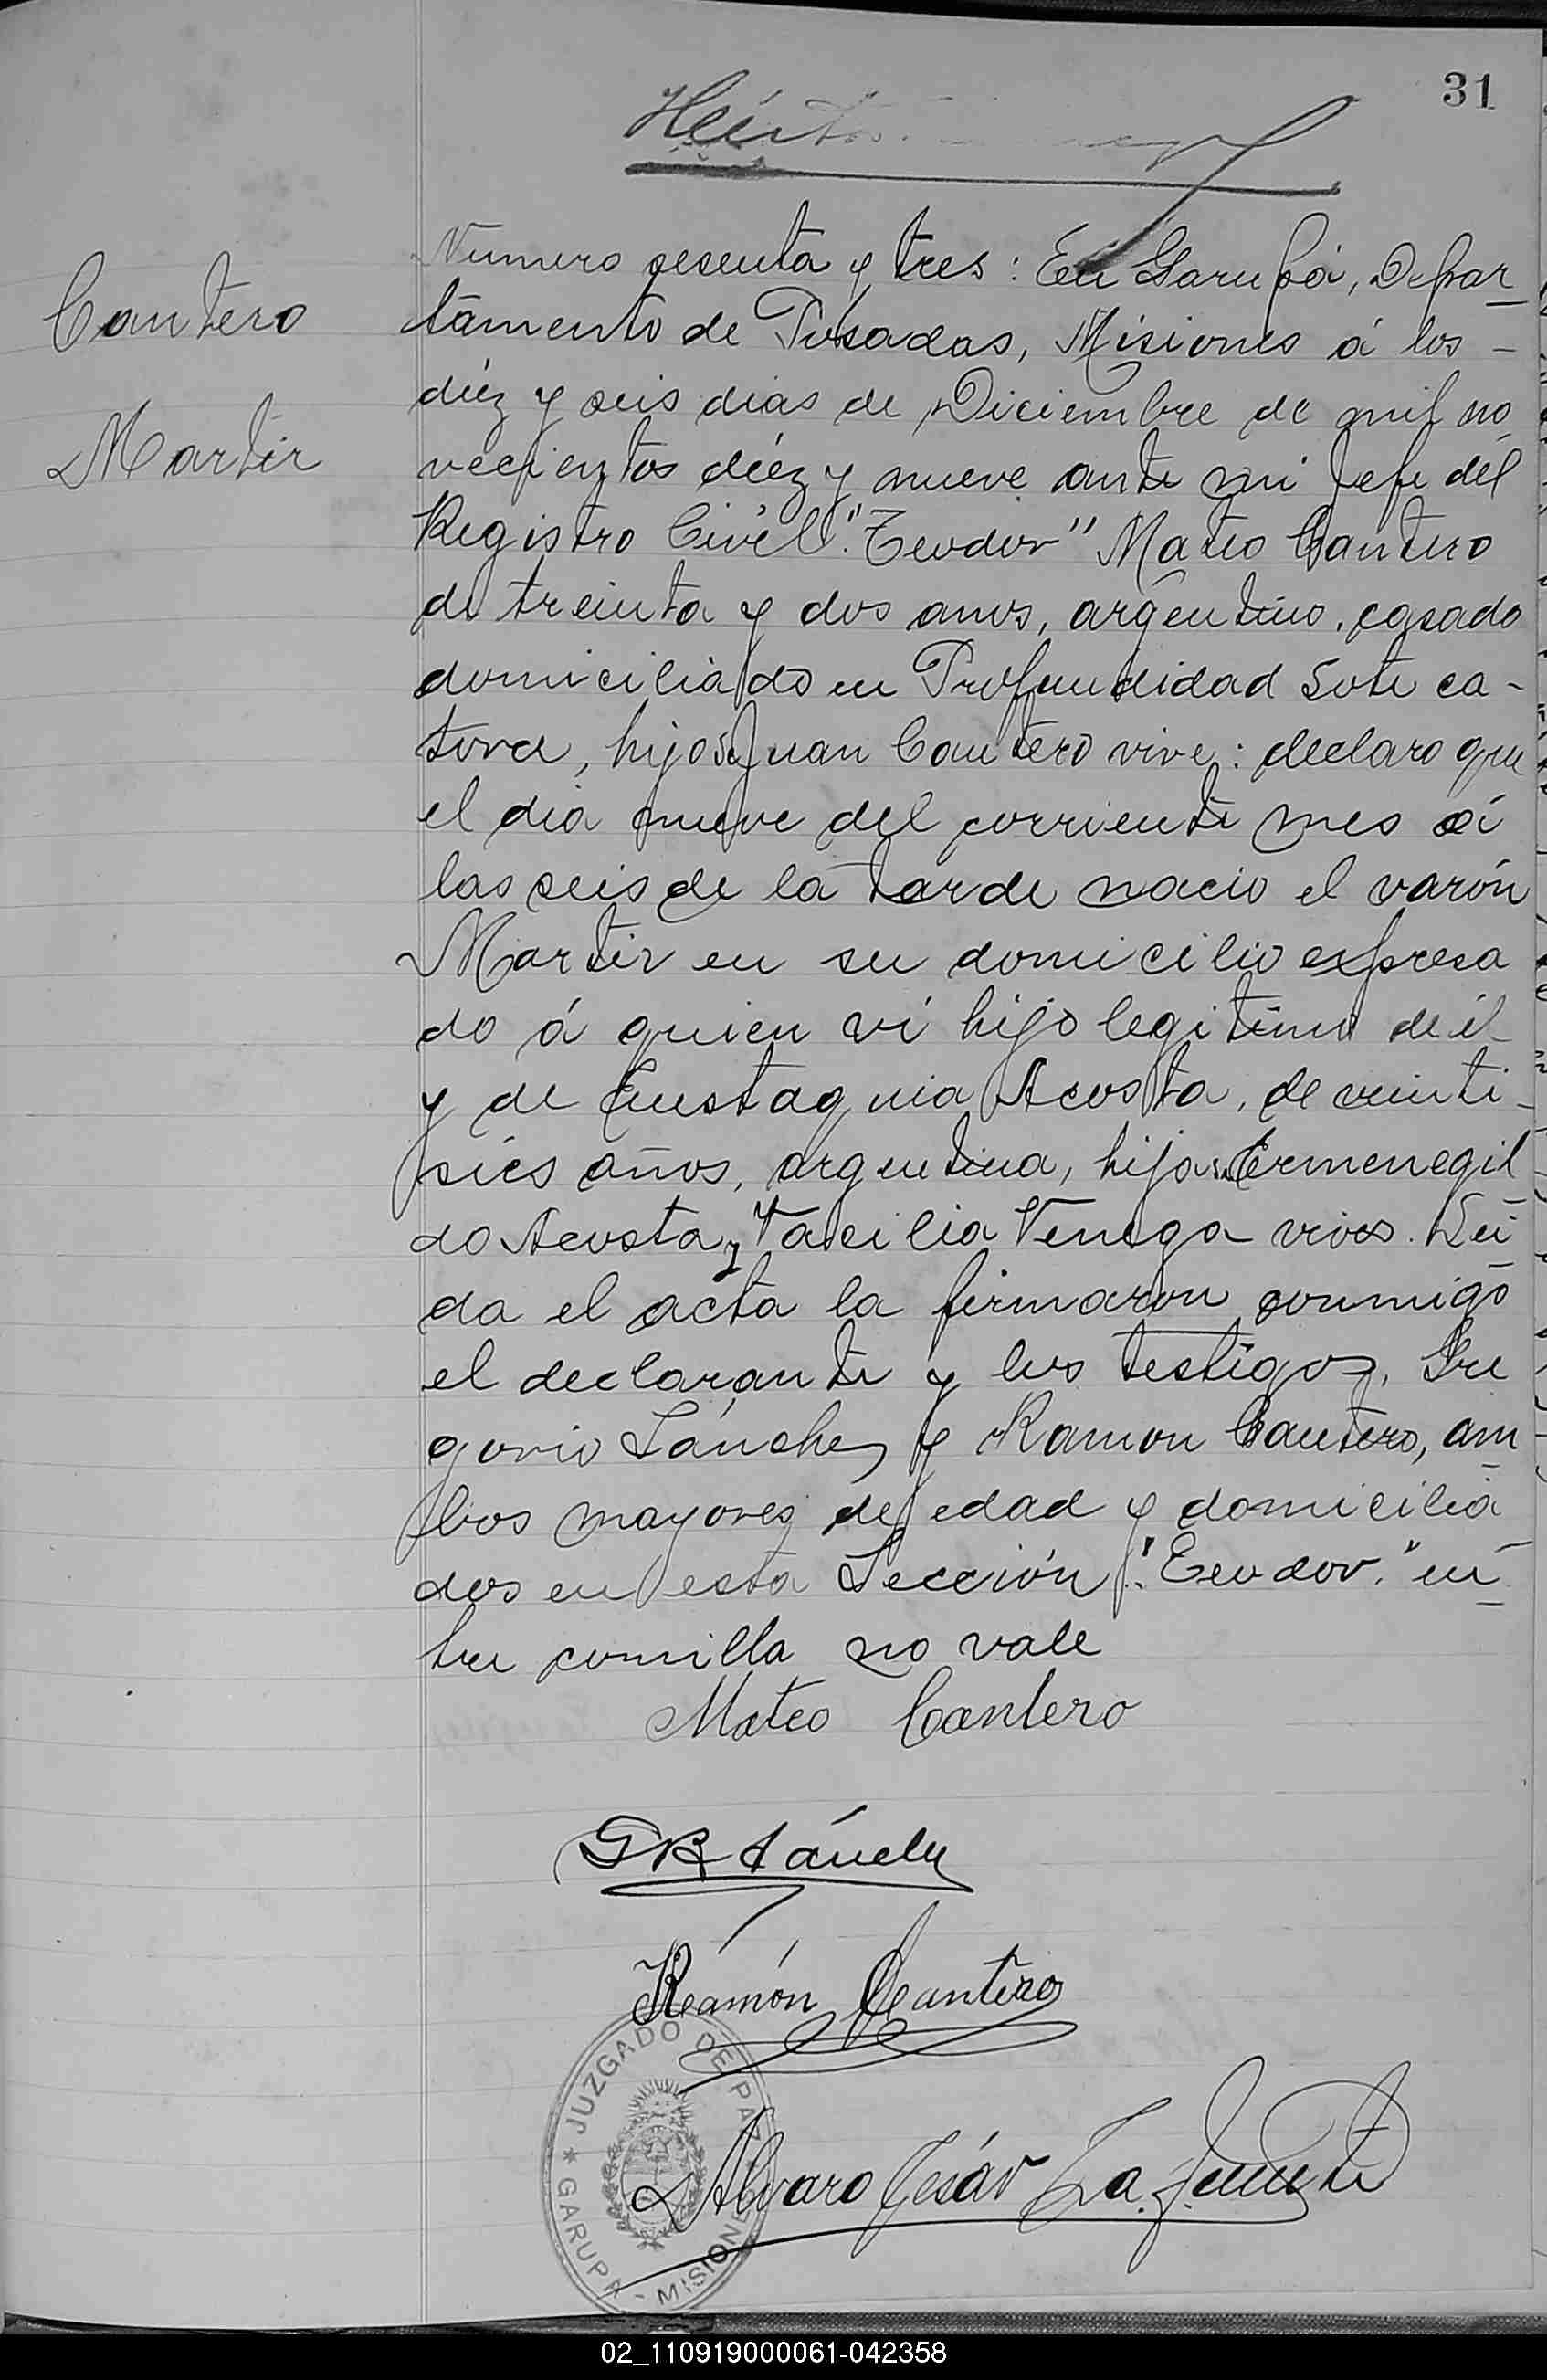 31
Cantero
Martir
Numero sesenta y tres: En Garupá, Depar
tamento de Posadas, Misiones á los -
diéz y seis dias de Diciembre de mil no
vecientos diéz y nueve ante mi Jefe del
Registro Civil. "Teodor" Mateo Cantero
de treinta y dos anos, argentino, casado
domiciliado en Profundidad Lote ca-
torce, hijo de Juan Cantero vive: declaro que
el dia nueve del corriente mes á
las seis de la tarde nacio el varón
Martir en su domicilio expresa
do á quien ví hijo legitimo de él
y de Eustaquia Acosta, de veinti-
siés años, argentina, hija de Ermenegil
do Acosta y Tacilia Venega vivos. Lei
da el acta la firmaron conmigo
el declarante y los testigos, Gre
gorio Sánchez y Ramon Cantero, am
bos mayores de edad y domicilia
dos en esta Sección: "Teodor." en
tre comilla no vale
Mateo Cantero
GR Sánchez
Ramón Cantero
Alvaro César La Fuente
JUZGADO DE PAZ
* GARUPA - MISIONES
02_110919000061-042358